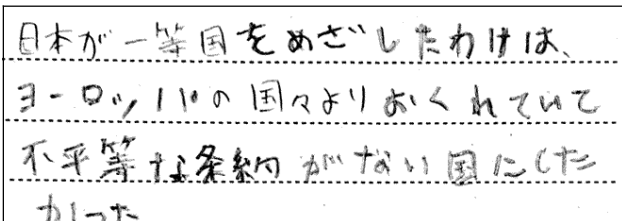 日本が一等国をめざしたわけは、
ヨーロッパの国々よりおくれていて
不平等な条約がない国にした
かった